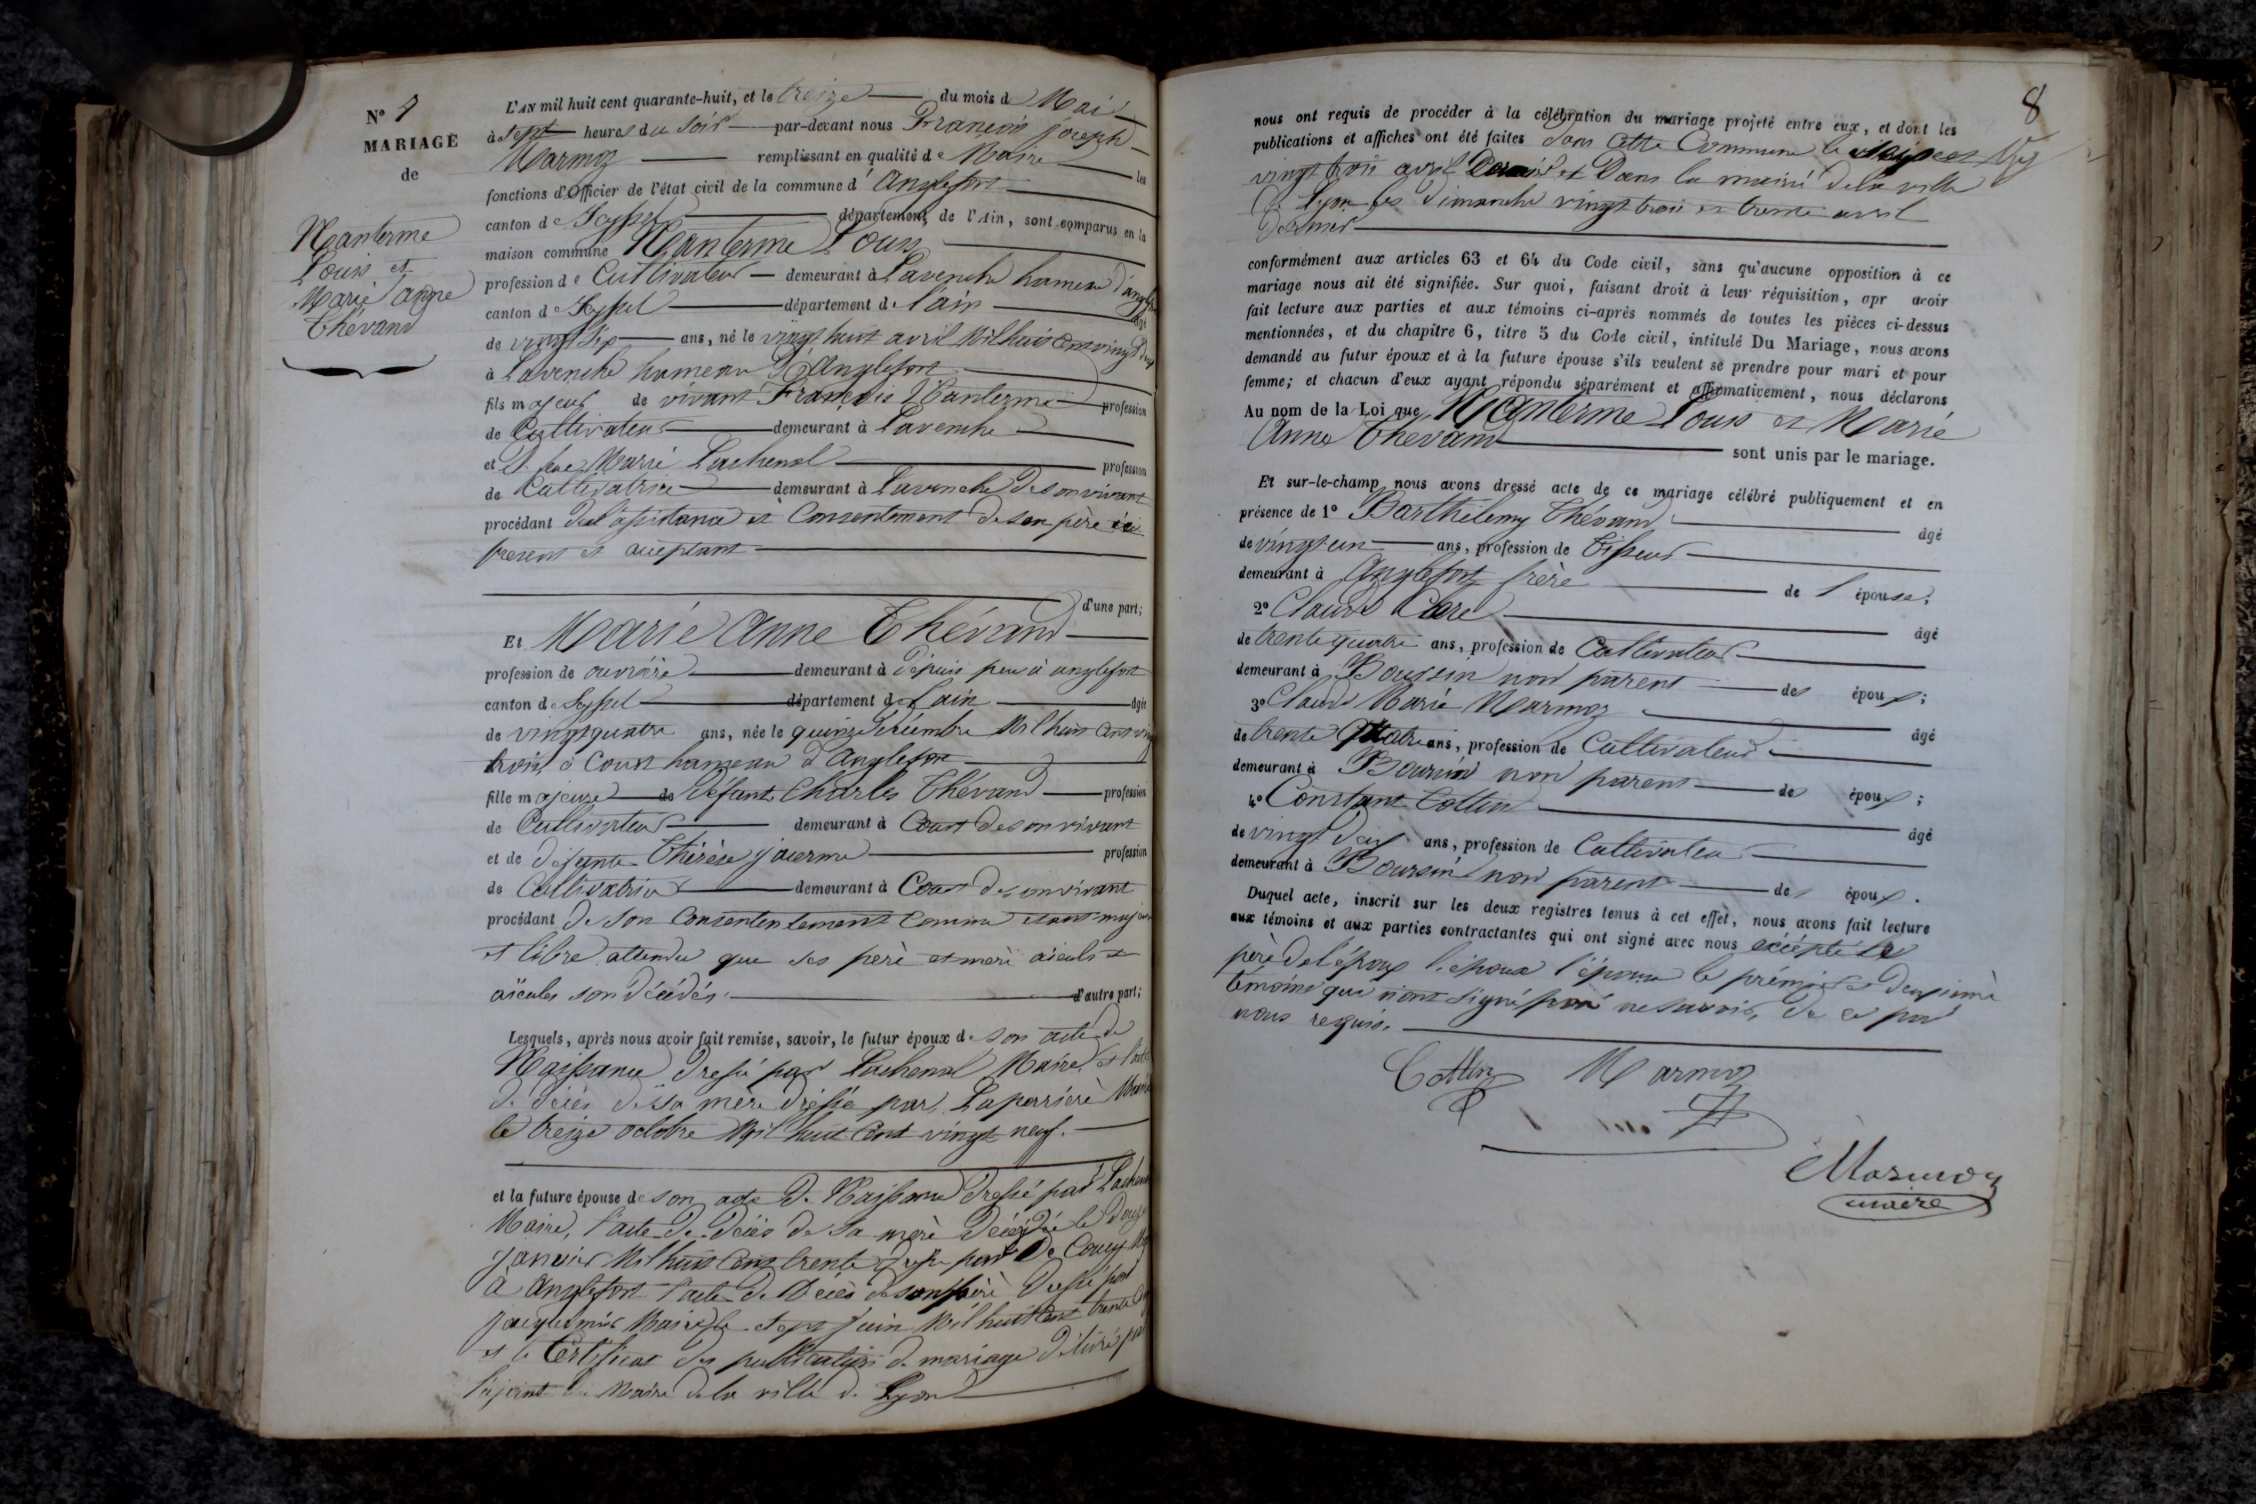 N° 7
MARIAGE
de
Nanterme
Louis et
Marie anne
Thévand
L'AN mil huit cent quarante-huit, et le treize du mois de Mai
à sept heures du soir par-devant nous François joseph
Marmoz remplissant en qualité de Maire les
fonctions d'Officier de l'état civil de la commune d'Anglefort
canton de Seyssel département de l'Ain, sont comparus en la
maison commune Nanterme Louis
profession de Cultivateur demeurant à Lavenche hameau d'anglefort
canton de Seyssel département de l'ain âgé
de vingt six ans, né le vingt huit avril Mil huit Cent vingt deux
à Lavenche hameau d'Anglefort
fils majeur de vivant François Nanterme profession
de Cultivateur demeurant à Lavenche
et de feue Marie Lachenal profession
de Cultivatrice demeurant à Lavenche de son vivant
procédant de l'assistance et Consentement de son père ici
present et acceptant
d'une part;
Et Marie Anne Thévand
profession de ouvrière demeurant à depuis peu à anglefort
canton de Seyssel département de l'ain âgée
de vingt quatre ans, née le quinze décembre Mil huit Cent vingt
trois à Court hameau d'Anglefort
fille majeure de défunt Charles Thévand profession
de Cultivateur demeurant à Court de son vivant
et de défunte Thérèse profession
de Cultivatrice demeurant à Court de son vivant
procédant de son Consententement Comme étant majeure
et libre attendu que ses père et mère aïeuls et
aïeules son décédés. d'autre part;
Lesquels, après nous avoir fait remise, savoir, le futur époux de son acte de
Naissance dressé par Lachenal Maire, et l'acte
de décès de sa mère dressé par Laperrière Maire
le treize octobre Mil huit Cent vingt neuf.
et la future épouse de son acte de Naissance dressé par Lachenal
Maire, l'acte de décès de sa mère décédée le douze
janvier Mil huit Cent trente dressé par De Coucy
à Anglefort l'acte de Décès de son père dressé par
Maire le sept juin Mil huit Cent trente
et le Certificat des publications de mariage délivré par
l'ajoint du Maire de la ville de Lyon
8
nous ont requis de procéder à la célébration du mariage projeté entre eux, et dont les
publications et affiches ont été faites dans cette Commune le
vingt trois avril Dernier et Dans la mairie de la ville
de Lyon les dimanche vingt trois et trente avril
dernier
conformément aux articles 63 et 64 du Code civil, sans qu'aucune opposition à ce
mariage nous ait été signifiée. Sur quoi, faisant droit à leur réquisition, apr avoir
fait lecture aux parties et aux témoins ci-après nommés de toutes les pièces ci-dessus
mentionnées, et du chapitre 6, titre 5 du Code civil, intitulé Du Mariage, nous avons
demandé au futur époux et à la future épouse s'ils veulent se prendre pour mari et pour
femme; et chacun d'eux ayant répondu séparément et affirmativement, nous déclarons
Au nom de la Loi que Nanterme Louis et Marie
Anne Thévand sont unis par le mariage.
Et sur-le-champ nous avons dressé acte de ce mariage célébré publiquement et en
présence de 1° Barthélemy Thévand âgé
de vingt un ans, profession de tisseur
demeurant à Anglefort frère de l'épouse;
2° Claude Carel âgé
de trente quatre ans, profession de Cultivateur
demeurant à Boursin non parent des époux;
3° Claude Marie Marmoz âgé
de trente quatre ans, profession de Cultivateur
demeurant à Boursin non parent des époux;
4° Constant Cottin âgé
de vingt deux ans, profession de Cultivateur
demeurant à Boursin non parent des époux.
Duquel acte, inscrit sur les deux registres tenus à cet effet, nous avons fait lecture
aux témoins et aux parties contractantes qui ont signé avec nous excepté le
père de l'époux l'époux l'épouse le prémier et deuxième
témoins qui n'ont signé pour ne savoir, de ce par
nous requis.
Cottin Marmoz
Marmoz
maire